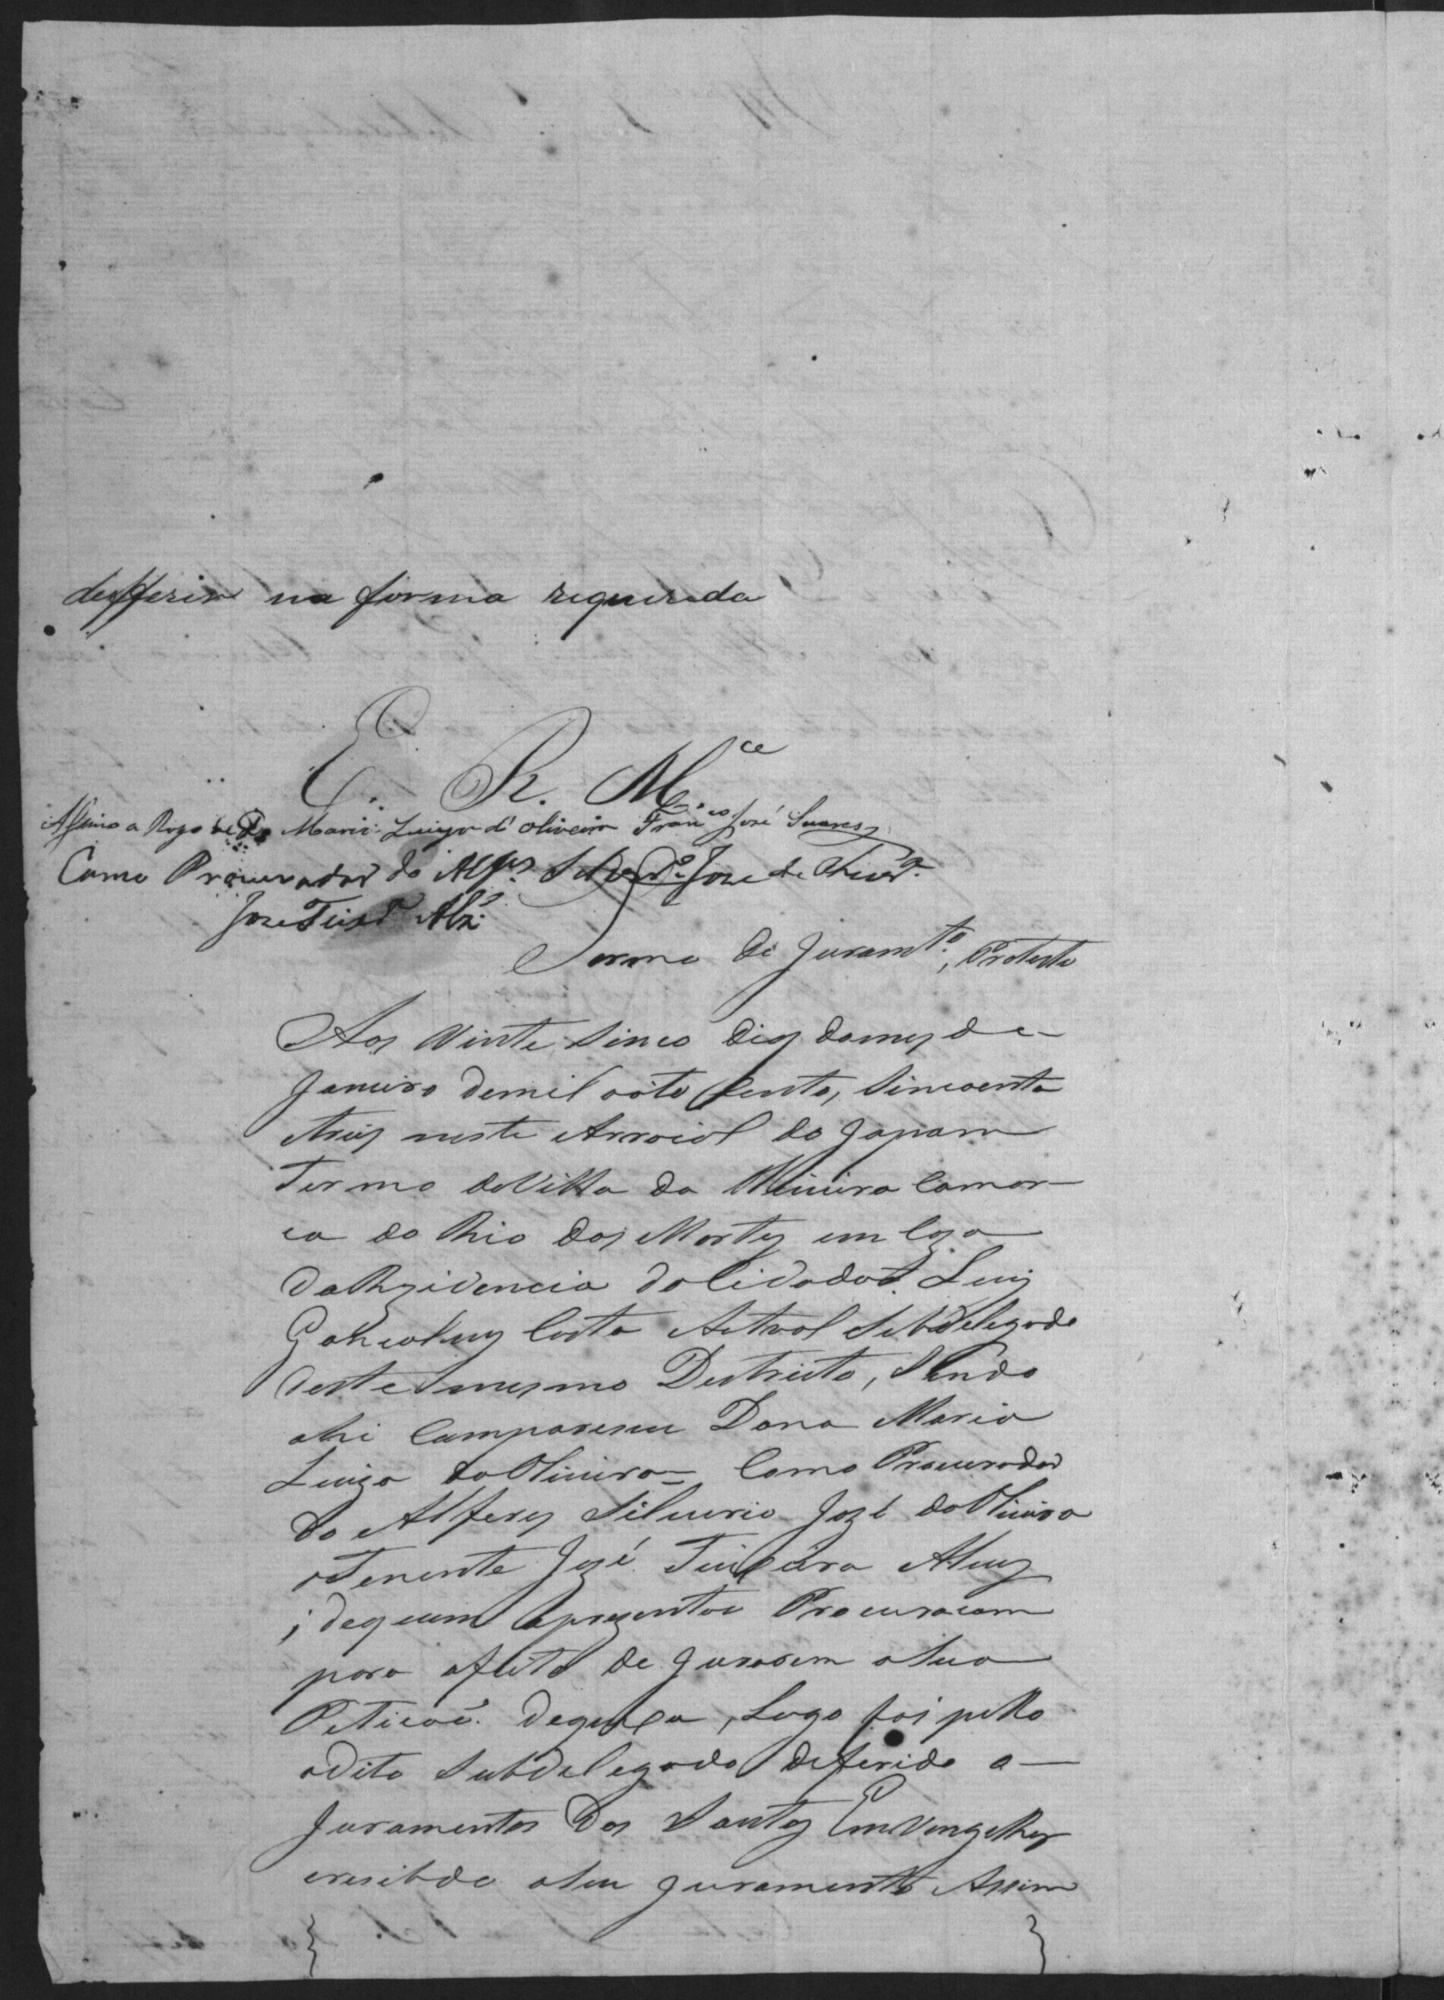 defferir na forma requerida
E. R. M.ce
Assino a Rogo de D. Maria Luiza d'Oliveira Fran.co José Suares
Como Procurador do Alfs. Silverio Joze de Oliver.a
Joze Teixr.a Alz.
Termo de Juramt.o, Protesto
Aos vinte sinco dias do mez de
Janeiro de mil oito sento, sincoenta
etreis neste Arraial do Japam
Termo da Villa da Oliveira Comar-
ca do Rio das Mortes em Caza
da Rezidencia do Cidadaõ Luis
Gonsalves Costa Actual Subdelegado
deste mesmo Destricto, Sendo
ahi Compareseu Dona Maria
Luiza de Oliveira = Como Procurador
do Alferes Silverio José de Oliveira
o Tenente José Teixeira Alves
; de quem aprezentou Procuracam
para afeito de Jurarem a Sua
Peticaõ de queixa, Logo foi pello
o dito Subdelegado deferido o
Juramentos dos Santos Emvangelhos
eresibido o Seu Juramento Assim